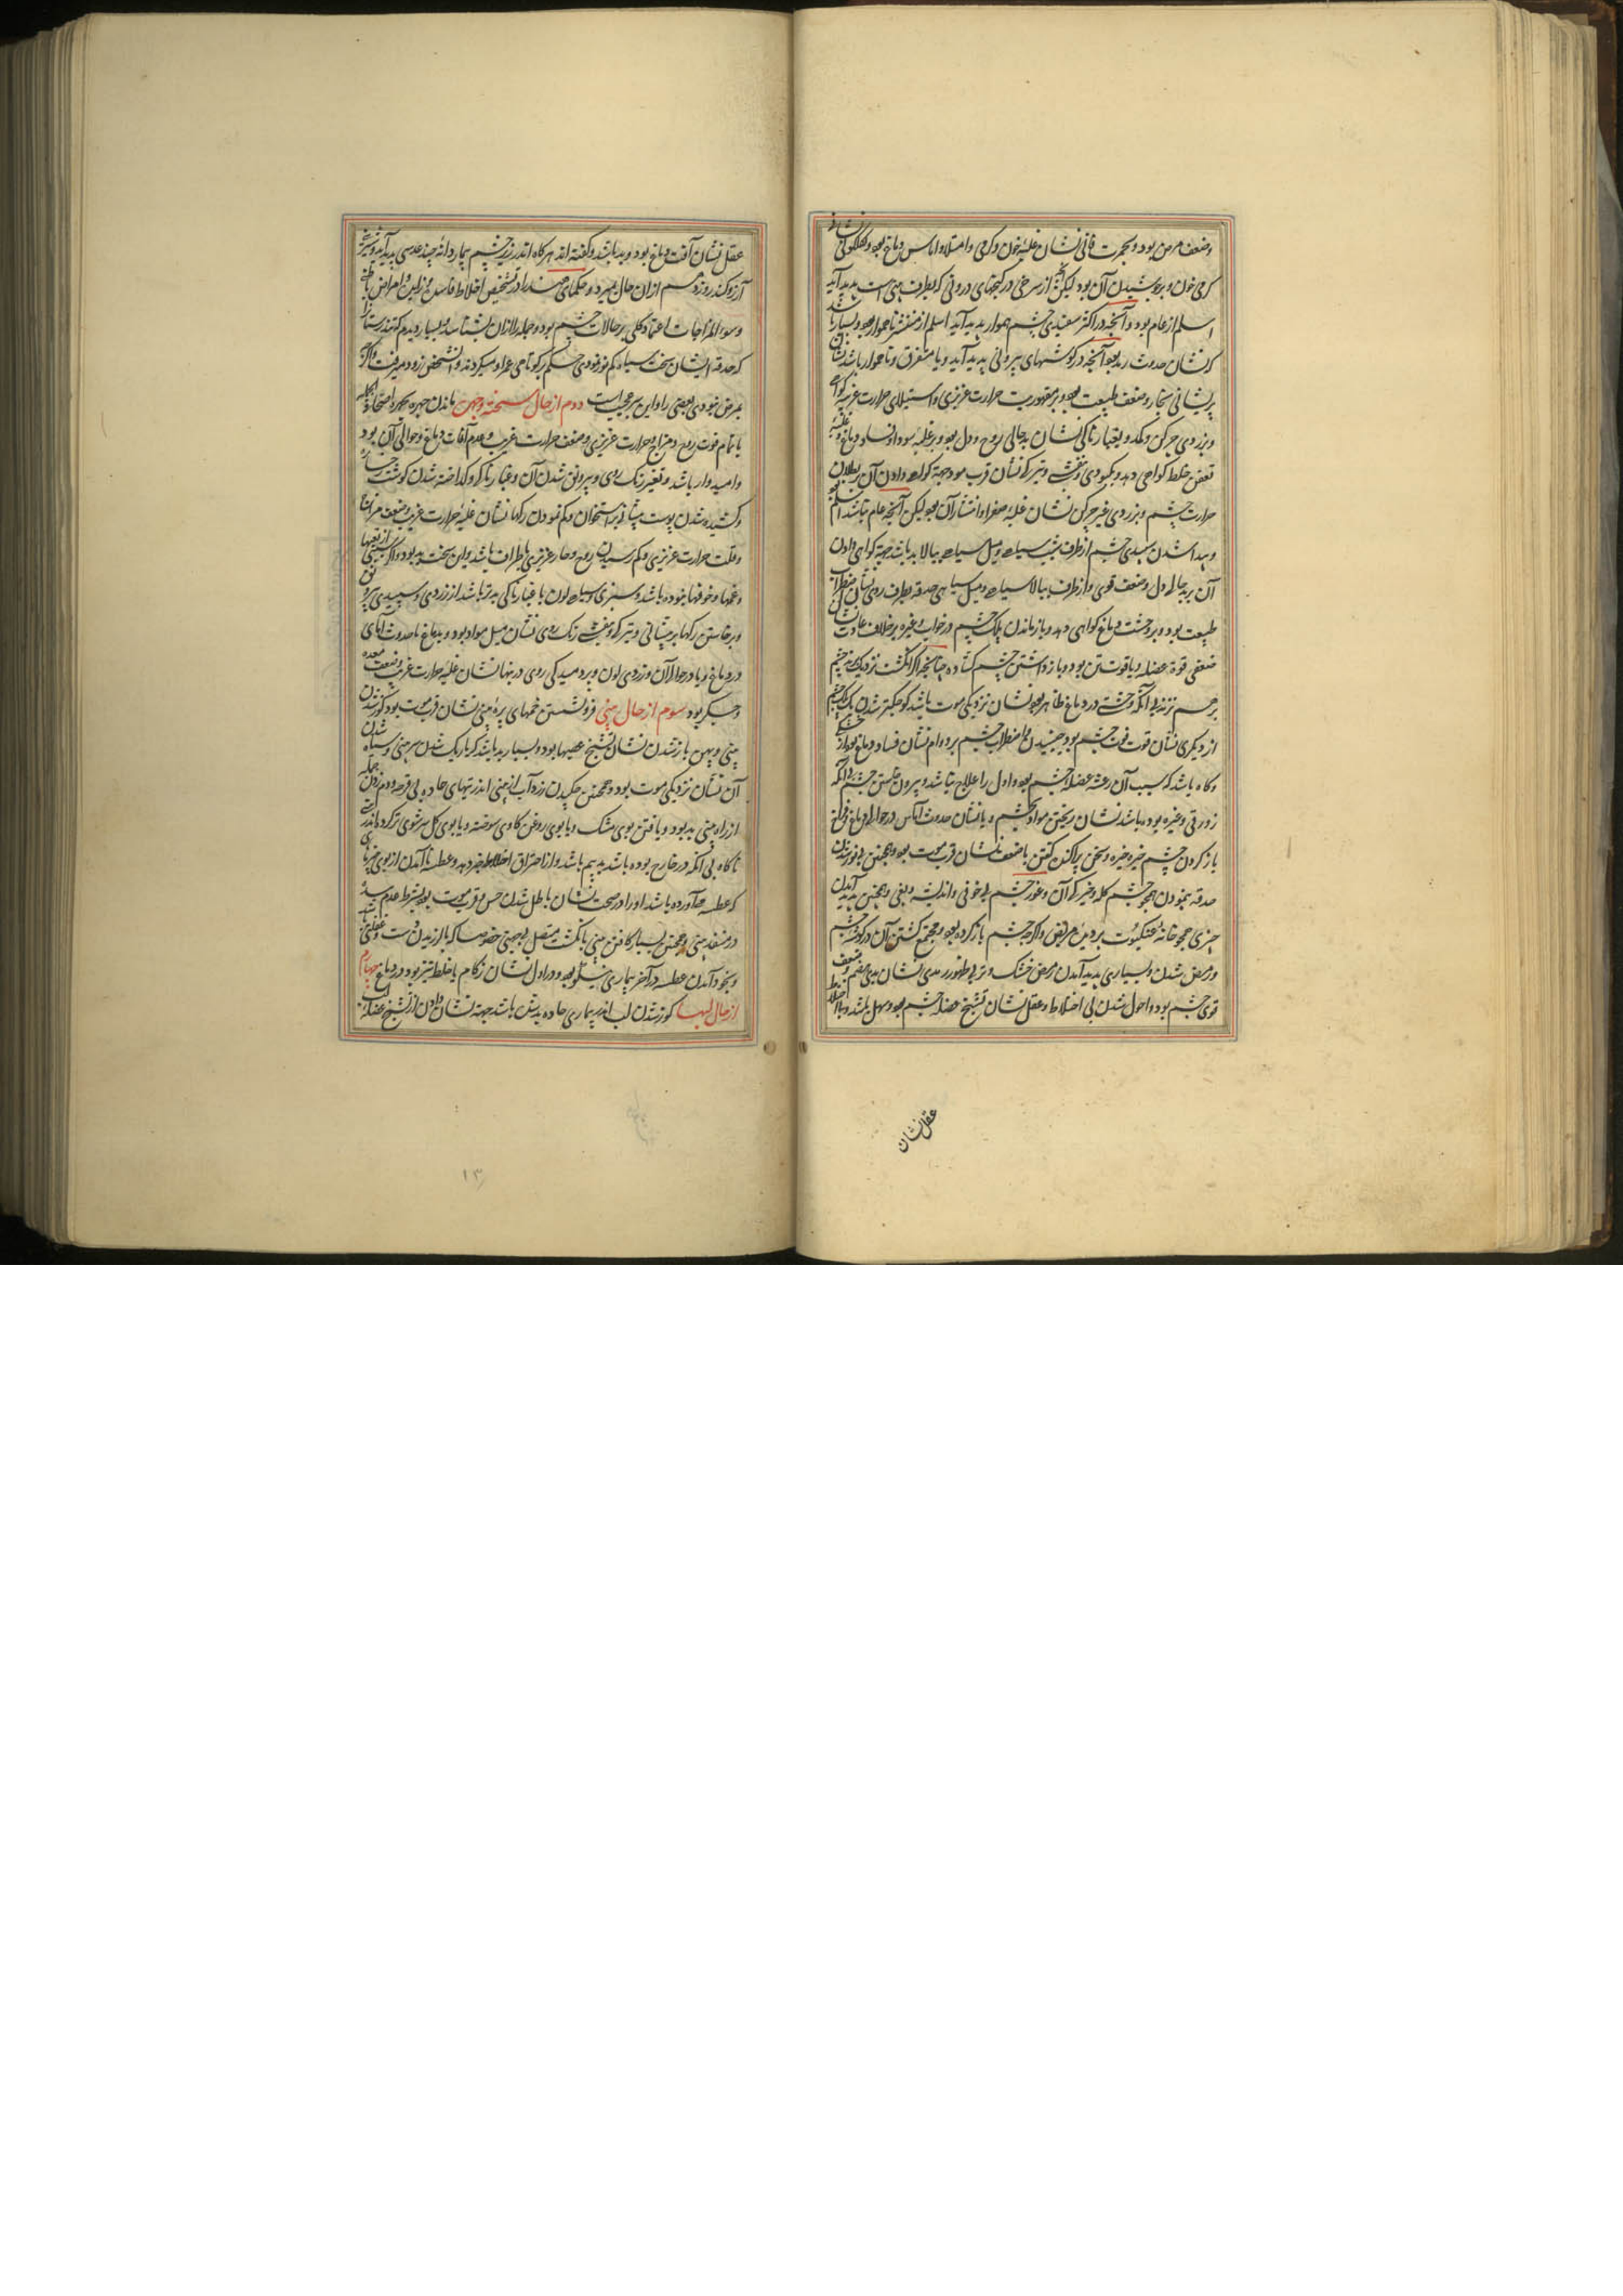 وضعف مرض بود و بحمرت قانی نشان غلبه خون و گرمی و امتلا و اماس دماغ بود
گرمی خون و بروشیدن آن بود لیکن از سرخی در کنجهای درونی که بطرف بینی است پدید آید
اسلم از عام بود و آنچه در اکثر سفیدی چشم هموار پدید آید اسلم از منتشر ناهموار بود و بسیار باشد
که نشان حدوث رمد بود آنچه در گوشهای بیرونی پدید آید و یا متفرق و ناهموار باشد نشان
پریشانی بخار و ضعف طبیعت بود و بر مقهوریت حرارت غریزی و استیلای حرارت غریبه گواهی
و بزردی چرکن و کمد و بغبارناکی نشان بدحالی روح و دل بود و بر غلبه سودا و فساد دماغ و غلبه
تعفن خلط گواهی دهد و بکبودی و بنفشی و تیرگی نشان قرب موت جهة گواهی دادن آن بر بطلان
حرارت چشم و بزردی غیر چرکن نشان غلبه صفرا و انتشار آن بود لیکن آنچه عام نباشد اسلم بود
و پیدا شدن سپیدی چشم از طرف شیب سیاهی و میل سیاهی ببالا بد باشد جهة گواهی دادن
آن بر بدحالی دل و ضعف قوی و از طرف ببالا سیاهی و میل سیاهی حدقه بطرف روی نشان اضطراب
طبیعت بود و بر وحشت دماغ گواهی دهد و بازماندن پلک چشم در خواب و غیره بر خلاف عادت نشان
ضعفی قوة عضله و یا قوت تن بود و باز داشتن چشم گشاده چنانچه اگر انگشت نزدیک برند چشم
بر هم نزند بی آنکه وحشتی در دماغ ظاهر بود نشان نزدیکی موت باشد کوچکتر شدن یک چشم
از دیگری نشان قوت فوت چشم بود و جنبیدن و اضطراب چشم بر دوام نشان فساد دماغ بود از خشکی
و گاه باشد که سبب آن رعشه عضله چشم بود و اول را علاج نباشد و بیرون خاستن چشم بی آنکه
زورقی و غیره بوده باشد نشان ریختن مواد بچشم و یا نشان حدوث آماس در حوالی دماغ و فراخ
باز کردن چشم خیره خیره و سخن پراکنده گفتن با ضعف نشان قرب موت بود و همچنین بی نور شدن
حدقه بنمودن همچو چشم گله و خیرگی آن و غور چشم بی خوفی و اندیشه و بغی و همچنین پدید آمدن
چیزی همچو خانه عنکبوت بر دیدن مریض و اگرچه چشم باز کرده بود و مجتمع گشتن آن در گوشه چشم
و رمص شدن و بسیاری پدید آمدن رمص خشک و تر بی ظهور رمدی نشان بدی هضم و ضعف
قوی چشم بود و احول شدن بی اختلاط و عقل نشان تشنج عضله چشم بود و سهل باشد و با اختلاط
عقل نشان
عقل نشان آفت دماغ بود و بد باشد و گفته اند هرگاه اندر زیر چشم بیمار دانه چند عدسی پدید آید و شیرینی
آرزو کند روز دهم از آن حال بمیرد و حکمای هند را در تشخیص اخلاط فاسده و امراض باطنی
و سوء المزاجات اعتماد کلی بر حالات چشم بود و جمله را از آن بشناسند و بسیار دیدم که تندرستان را
که حدقه ایشان سخت سیاه و کم نور بودی حکم بر کوتاهی عمر او میکردند و آنشخص زود میرفت و اگرچه
بمرض نبودی بعضی را و این سر عجایب است دوم از حال سحنه وجه ماندن چهره بچهره اصحاء و الجمله
یا تمام قوت روح و مزاج و حرارت غریزی و ضعف حرارت غریب و عدم آفات دماغ و حوالی آن بود
و امیدوار باشد و تغیر رنگ روی و بی رونق شدن آن و غبارناکی و گداخته شدن گوشت رخساره
و کشیده شدن پوست پیشانی بر استخوان و کم نمودن رگها نشان غلبه حرارت غریب و ضعف مزاج
و قلت حرارت غریزی و کم رسیدن روح و حار غریزی باطراف باشد و این سخت بد بود و اگر سببی از تعبها
و غمها و خوفها نبوده باشد و سبزی و سیاهی لون با غبارناکی بدتر باشد از زردی و سپیدی بی رونق
و برخاستن رگها بر پیشانی و تیرگی و بنفشی رنگ روی نشان میل مواد بود و بدماغ یا حدوث آماسی
در دماغ و یا در حوالی آن و زردی لون و بردمیدگی روی در تبها نشان غلبه حرارت غریب و ضعف معده
و جگر بود سوم از حال بینی فرو نشستن خمهای پره بینی نشان قرب موت بود کوژ شدن
بینی و پهن باز شدن نشان تشنج عصبها بود و بسیار بد باشد که باریک شدن سر بینی و سیاه شدن
آن نشان نزدیکی موت بود و همچنین چکیدن زرد آب از بینی اندر تبهای حاده بی قرحه و دم زدن جمله
از راه بینی بد بود و یافتن بوی مشک و یا بوی روغن گاوی سوخته و یا بوی گل سرشوی تر کرده اندر بینی
ناگاه بی آنکه در خارج بوده باشد بد بیم باشد و از احتراق اخلاط خبر دهد و عطسه نا آمدن از بوی چیزهای
که عطسه آورده باشد او را در صحت نشان باطل شدن حس و قرب موت بود بشرط عدم سده
در منفذ بینی و همچنین بسیار کافتن بینی بانگشت متصل بی جهتی خصوصا که با لرزیدن دست و غفلتی باشد
و بخود آمدن عطسه در آخر بیماری نیکو بود و در اول نشان زکام یا خلط تیز بود در دماغ چهارم
از حال لبها کوژ شدن لب اندر بیماری حاده بد باشد جهة نشان دادن از تشنج عضله
۱۳